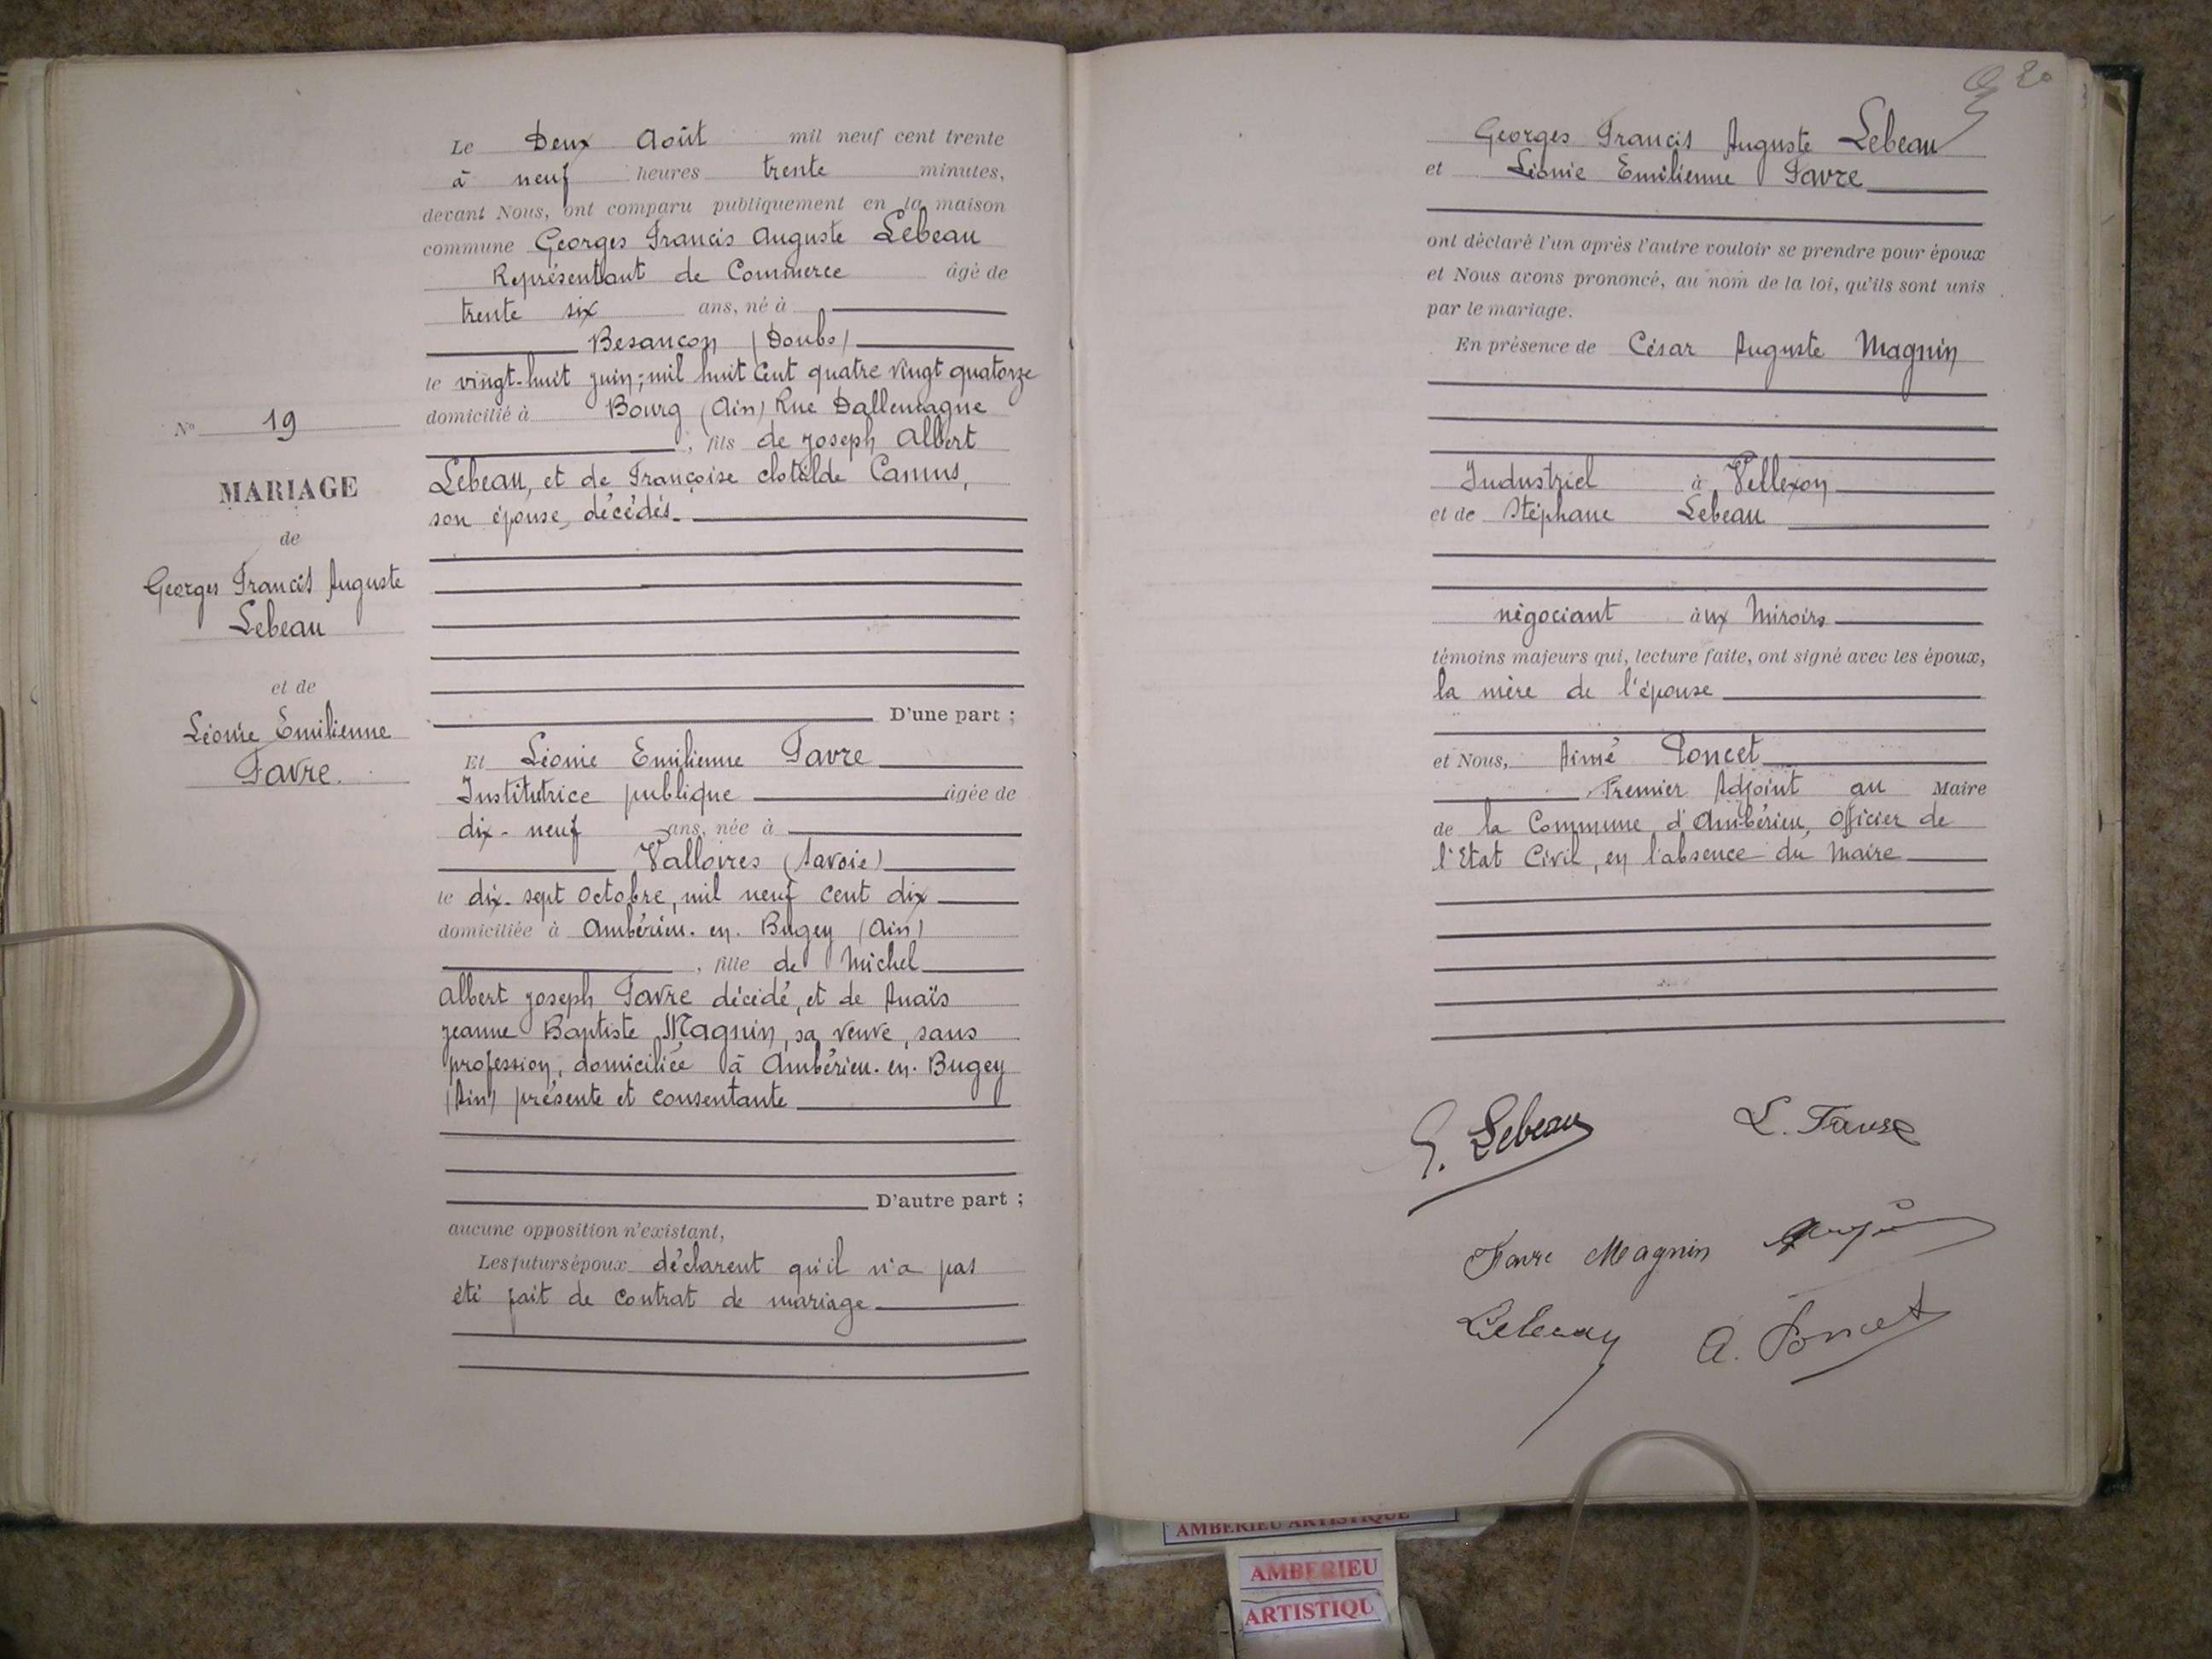 Le Deux Août mil neuf cent trente
à neuf heures trente minutes,
devant Nous, ont comparu publiquement en la maison
commune Georges Francis Auguste Lebeau
Représentant de Commerce âgé de
trente six ans, né à
Besançon (Doubs)
le vingt-huit juin; mil huit Cent quatre vingt quatorze
domicilié à Bourg (Ain) Rue Dallemagne
, fils de Joseph Albert
Lebeau, et de Françoise clotilde Camus,
son épouse, décédés.
No 19
MARIAGE
de
Georges Francis Auguste
Lebeau
et de
Léonie Emilienne
Favre.
D'une part ;
Et Léonie Emilienne Favre
Institutrice publique âgée de
dix-neuf ans, née à
Valloires (Savoie)
le dix-sept Octobre, mil neuf cent dix
domiciliée à Ambérieu-en-Bugey (Ain)
, fille de Michel
Albert Joseph Favre décédé, et de Anaïs
Jeanne Baptiste Magnin, sa veuve, sans
profession, domiciliée à Ambérieu-en-Bugey
(Ain) présente et consentante
D'autre part ;
aucune opposition n'existant,
Les futurs époux déclarent qu'il n'a pas
été fait de contrat de mariage
20
Georges Francis Auguste Lebeau
et Léonie Emilienne Favre
ont déclaré l'un après l'autre vouloir se prendre pour époux
et Nous avons prononcé, au nom de la loi, qu'ils sont unis
par le mariage.
En présence de César Auguste Magnin
Industriel à Vellexon
et de Stéphane Lebeau
négociant aux Miroirs
témoins majeurs qui, lecture faite, ont signé avec les époux,
la mère de l'épouse
et Nous, Aimé Poncet
Premier Adjoint au Maire
de la Commune d'Ambérieu, Officier de
l'Etat Civil, en l'absence du Maire
G. Lebeau L. Favre
Favre Magnin
Lebeau A. Poncet
AMBERIEU ARTISTIQUE
AMBERIEU
ARTISTIQU